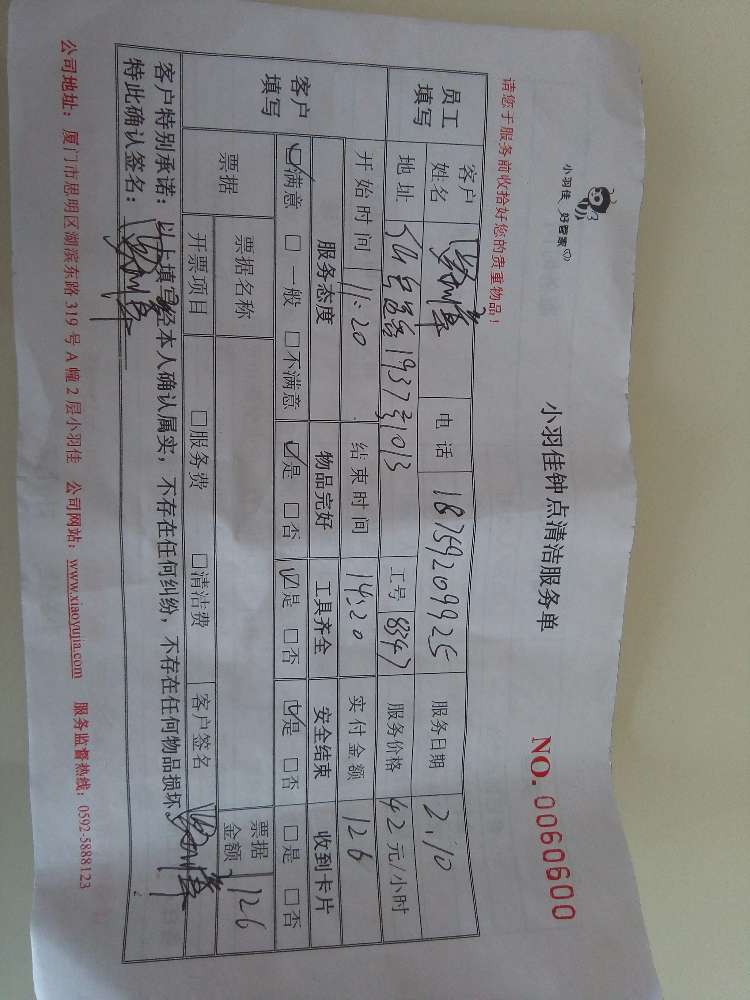 小羽佳 好管家
小羽佳钟点清洁服务单
NO. 0060600
请您于服务前收拾好您的贵重物品！
员工填写 客户姓名 电话 18759209925 服务日期 2.10
地址 1937之1013 工号 8347 服务价格 42元/小时
开始时间 11:20 结束时间 14:20 实付金额 126
客户填写 服务态度 物品完好 工具齐全 安全结束 收到卡片
☑满意 □一般 □不满意 ☑是 □否 ☑是 □否 ☑是 □否 □是 □否
票据 票据名称 票据金额 126
开票项目 □服务费 □清洁费 客户签名
客户特别承诺：以上填写经本人确认属实，不存在任何纠纷，不存在任何物品损坏。
特此确认签名：
公司地址：厦门市思明区湖滨东路 319 号 A 幢 2 层小羽佳 公司网站：www.xiaoyujia.com 服务监督热线：0592-5888123